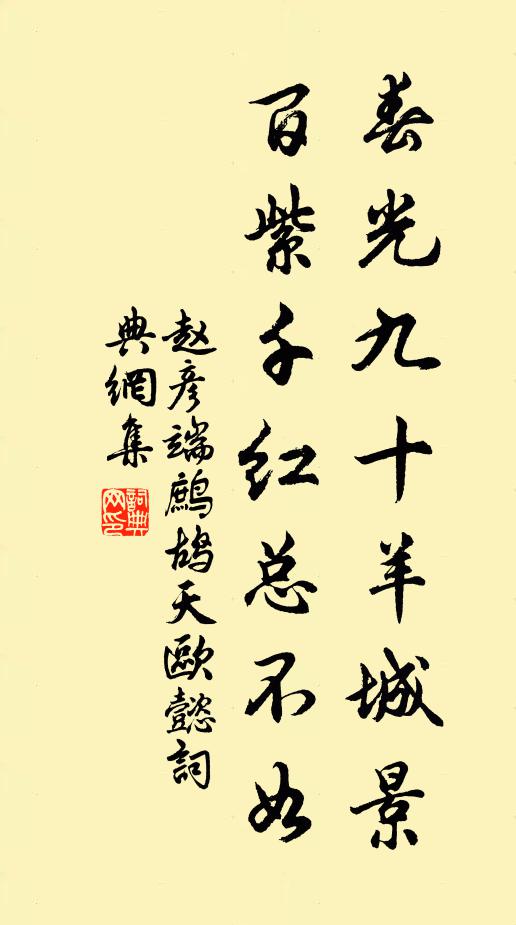 春光九十羊城景
百紫千红总不如
赵彦端鹧鸪天歐懿詞
典網集
詞典
网印